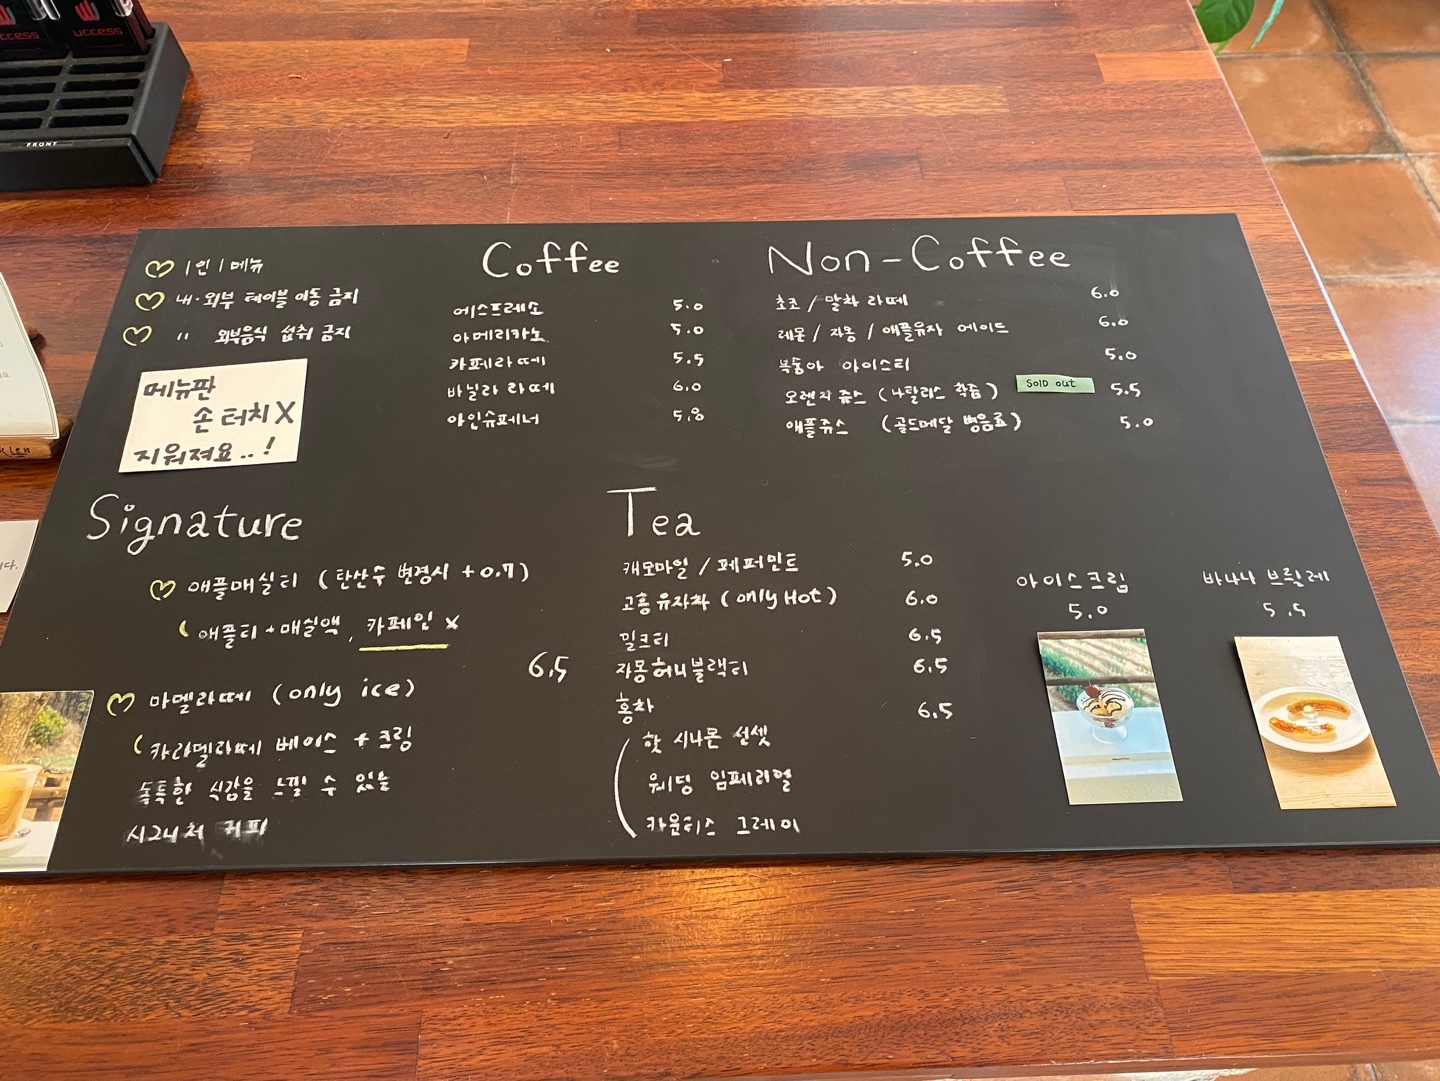 uccess
FRONT
1인 1메뉴
내·외부 테이블 이동 금지
〃 외부음식 섭취 금지
메뉴판
손 터치 X
지워져요..!
Coffee
에스프레소 5.0
아메리카노 5.0
카페라떼 5.5
바닐라 라떼 6.0
아인슈페너 5.8
Non-Coffee
초코 / 말차 라떼 6.0
레몬 / 자몽 / 애플유자 에이드 6.0
복숭아 아이스티 5.0
오렌지 쥬스 (나탈리스 착즙) Sold out 5.5
애플쥬스 (골드메달 병음료) 5.0
Signature
애플매실티 (탄산수 변경시 +0.7)
애플티 + 매실액, 카페인 X
6.5
마델라떼 (only ice)
카라멜라떼 베이스 + 크림
독특한 식감을 느낄 수 있는
시그니처 커피
Tea
캐모마일 / 페퍼민트 5.0
고흥유자차 (only Hot) 6.0
밀크티 6.5
자몽허니블랙티 6.5
홍차 6.5
핫 시나몬 선셋
웨딩 임페리얼
카운티스 그레이
아이스크림
5.0
바나나 브륄레
5.5